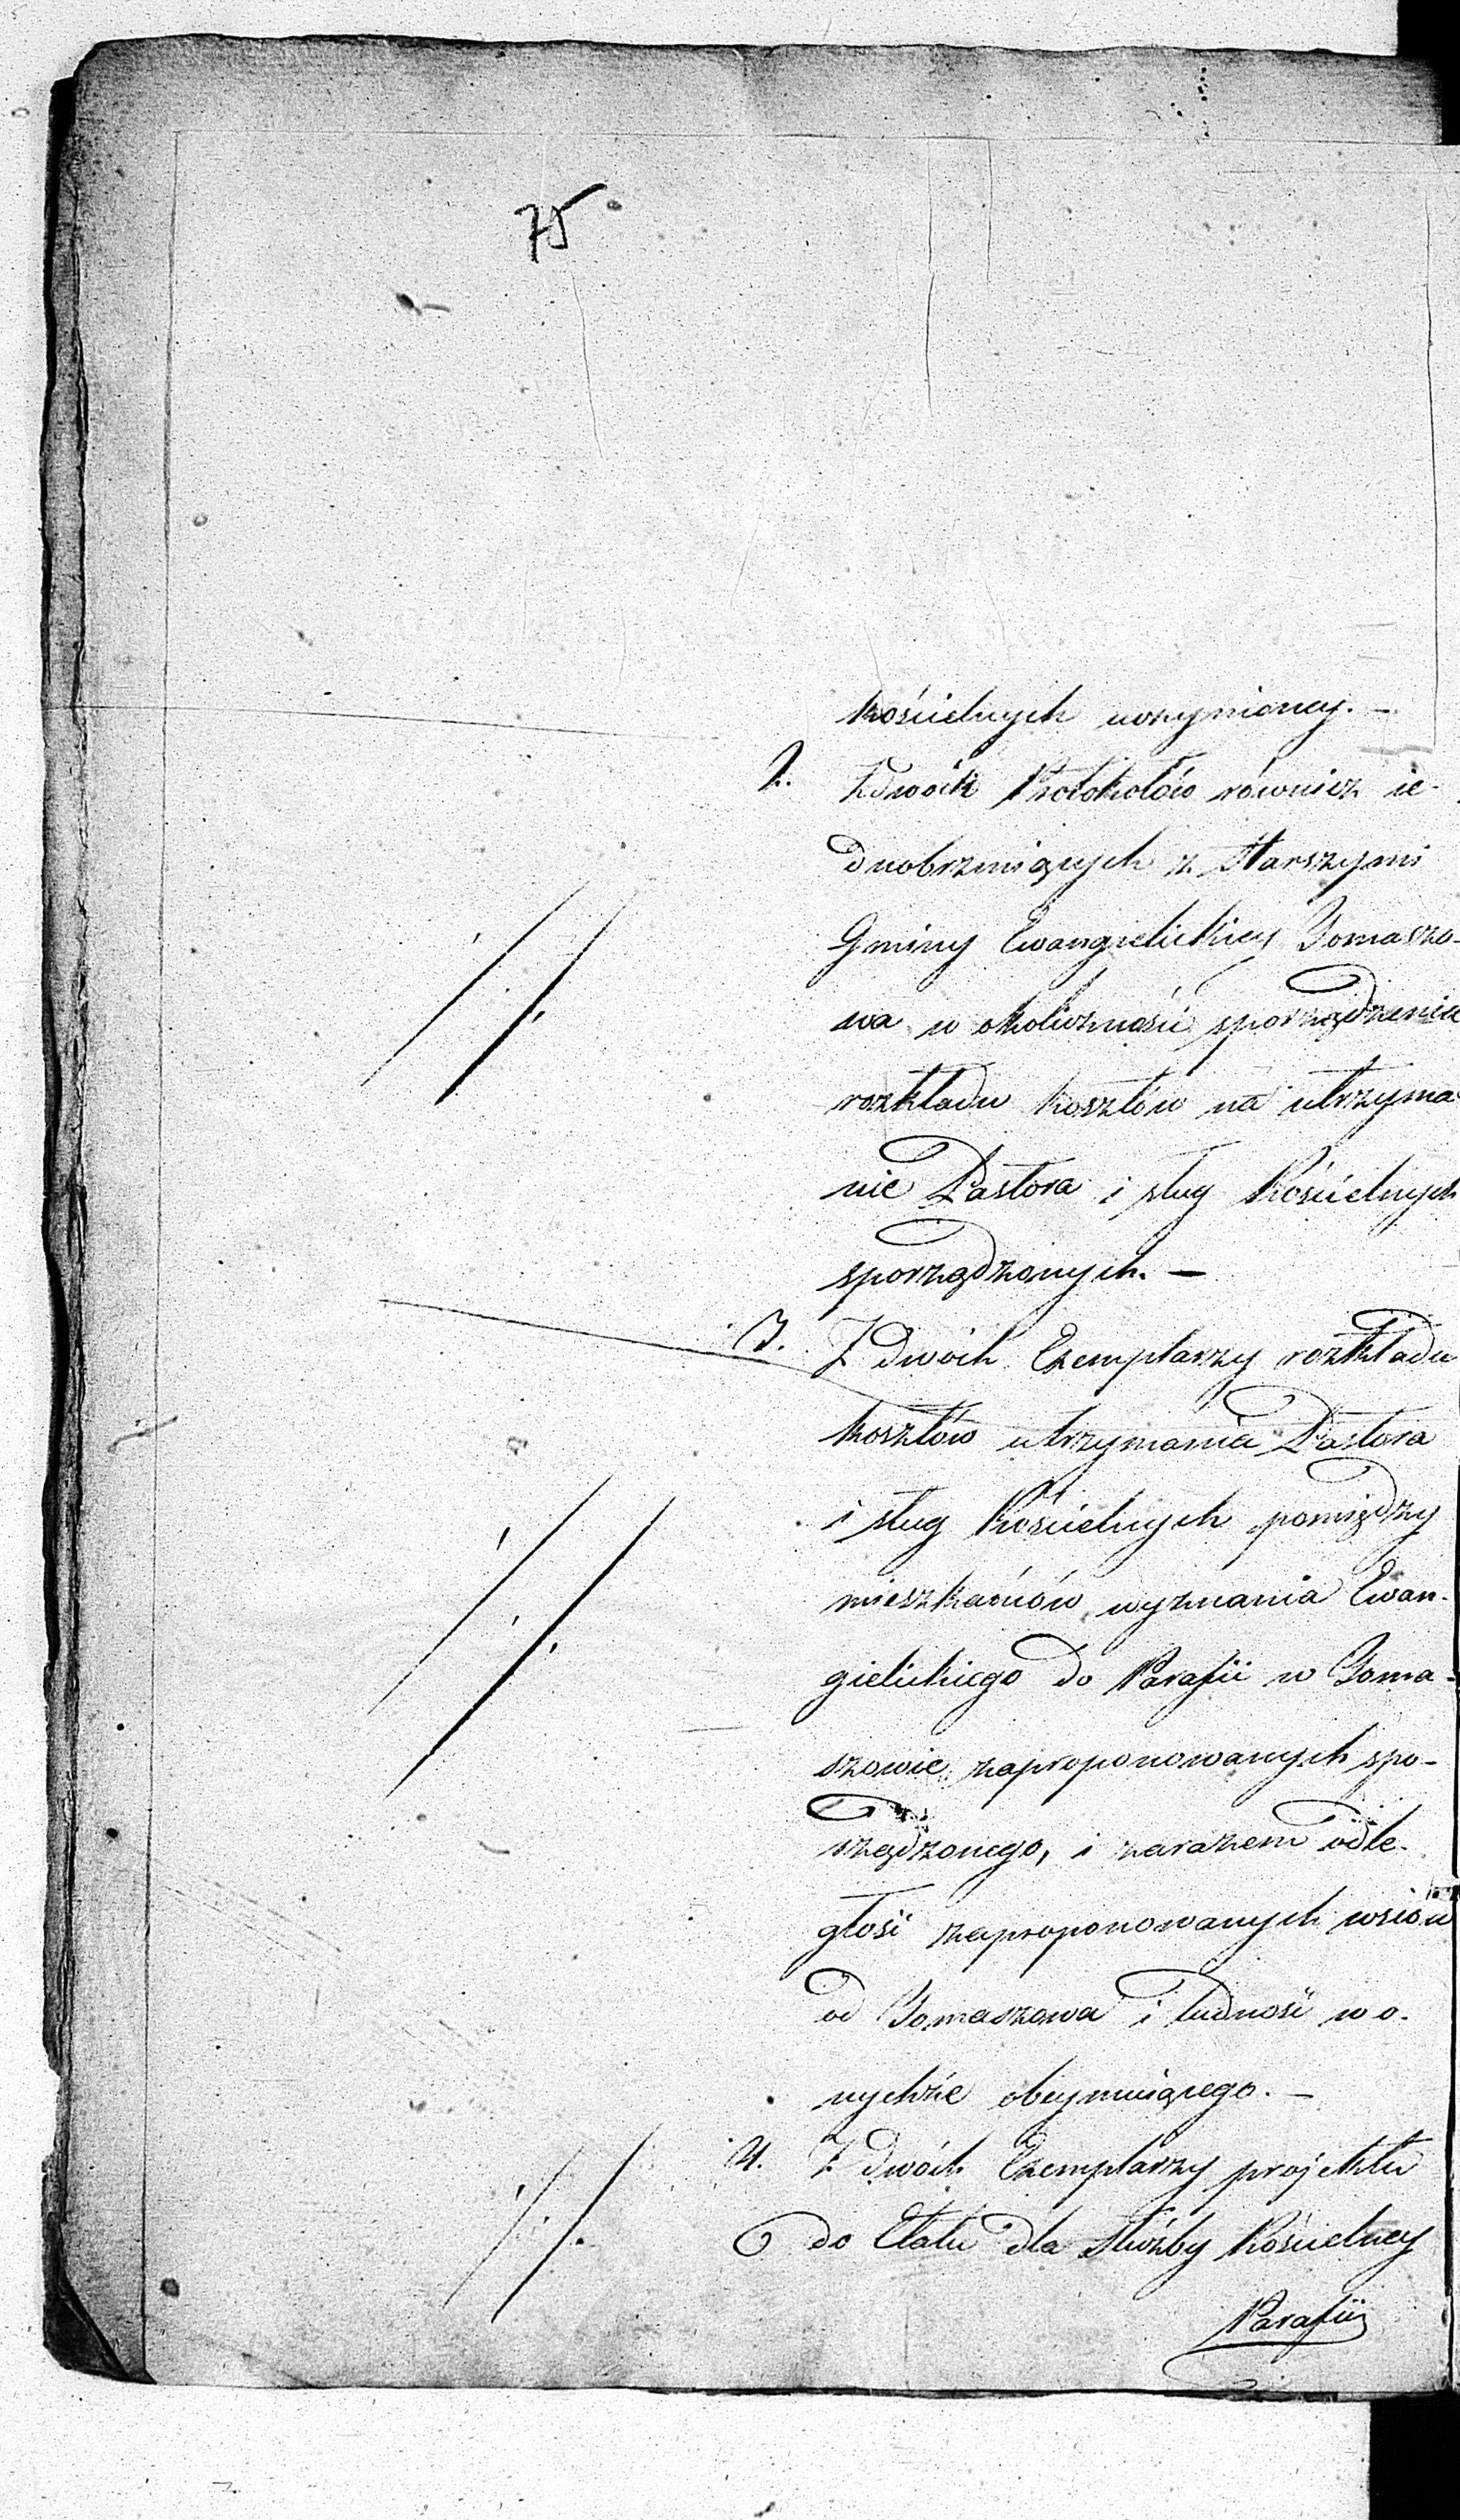 75
kościelnych uczynioney. —
2. Z dwóch Protokołów również ie-
dnobrzmiących z Starszymi
Gminy Ewangielickiey Tomaszo-
wa w okoliczność sporządzenia
rozkładu kosztów na utrzyma-
nie Pastora i sług Kościelnych
sporządzonych. —
3. Z dwóch Exemplarzy rozkładu
kosztów utrzymania Pastora
i sług Kościelnych pomiędzy
mieszkańców wyznania Ewan-
gielickiego do Parafii w Toma-
szowie zaproponowanych spo-
rządzonego, i zarazem odle-
głość zaproponowanych wsiów
od Tomaszowa i ludność w o-
nychże obeymuiącego. —
4. Z dwóch Exemplarzy projektu
do Etatu dla Służby Kościelney
Parafii